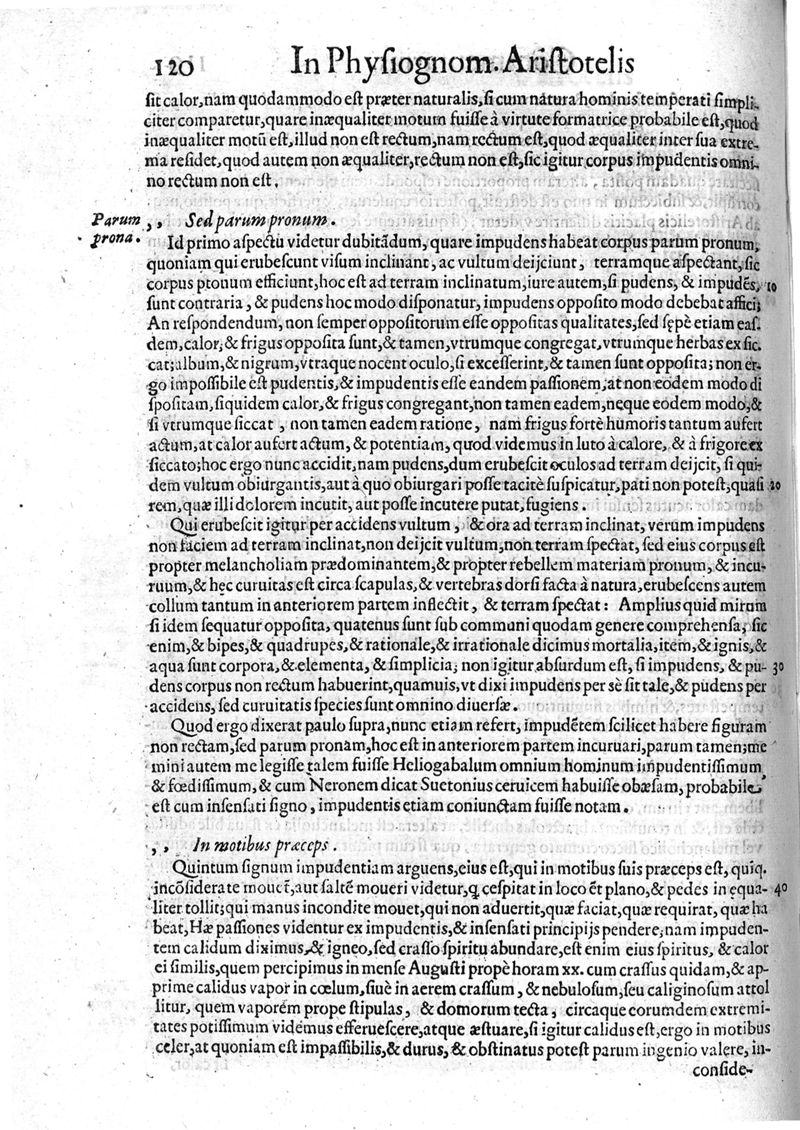 120 In Physiognom. Aristotelis
sit calor, nam quodammodo est præter naturalis, si cum natura hominis temperati simpli-
citer comparetur, quare inæqualiter motum fuisse à virtute formatrice probabile est, quod
inæqualiter motũ est, illud non est rectum, nam rectum est, quod æqualiter inter sua extre-
ma residet, quod autem non æqualiter, rectum non est, sic igitur corpus impudentis omni-
no rectum non est.
Parum prona.
,, Sed parum pronum.
Id primo aspectu videtur dubitãdum, quare impudens habeat corpus parum pronum,
quoniam qui erubescunt visum inclinant, ac vultum deijciunt, terramque aspectant, sic
corpus pronum efficiunt, hoc est ad terram inclinatum, iure autem, si pudens, & impudẽs, 10
sunt contraria, & pudens hoc modo disponatur, impudens opposito modo debebat affici;
An respondendum, non semper oppositorum esse oppositas qualitates, sed sępè etiam eas-
dem, calor, & frigus opposita sunt, & tamen, vtrumque congregat, vtrumque herbas exsic
cat; album, & nigrum, vtraque nocent oculo, si excesserint, & tamen sunt opposita; non er-
go impossibile est pudentis, & impudentis esse eandem passionem, at non eodem modo di
spositam, siquidem calor, & frigus congregant, non tamen eadem, neque eodem modo, &
si vtrumque siccat, non tamen eadem ratione, nam frigus fortè humoris tantum aufert
actum, at calor aufert actum, & potentiam, quod videmus in luto à calore, & à frigore ex
siccato; hoc ergo nunc accidit, nam pudens, dum erubescit oculos ad terram deijcit, si qui-
dem vultum obiurgantis, aut à quo obiurgari posse tacitè suspicatur, pati non potest, quasi 20
rem, quæ illi dolorem incutit, aut posse incutere putat, fugiens.
Qui erubescit igitur per accidens vultum, & ora ad terram inclinat, verum impudens
non faciem ad terram inclinat, non deijcit vultum, non terram spectat, sed eius corpus est
propter melancholiam prædominantem, & propter rebellem materiam pronum, & incu-
ruum, & hec curuitas est circa scapulas, & vertebras dorsi facta à natura, erubescens autem
collum tantum in anteriorem partem inflectit, & terram spectat: Amplius quid mirum
si idem sequatur opposita, quatenus sunt sub communi quodam genere comprehensa, sic
enim, & bipes, & quadrupes, & rationale, & irrationale dicimus mortalia, item, & ignis, &
aqua sunt corpora, & elementa, & simplicia; non igitur absurdum est, si impudens, & pu- 30
dens corpus non rectum habuerint, quamuis, vt dixi impudens per sè sit tale, & pudens per
accidens, sed curuitatis species sunt omnino diuersæ.
Quod ergo dixerat paulo supra, nunc etiam refert, impudẽtem scilicet habere figuram
non rectam, sed parum pronam, hoc est in anteriorem partem incuruari, parum tamen; me
mini autem me legisse talem fuisse Heliogabalum omnium hominum impudentissimum,
& fœdissimum, & cum Neronem dicat Suetonius ceruicem habuisse obæsam, probabile
est cum insensati signo, impudentis etiam coniunctam fuisse notam.
,, In motibus præceps.
Quintum signum impudentiam arguens, eius est, qui in motibus suis præceps est, quiq.
incõsiderate mouet, aut saltẽ moueri videtur, q cespitat in loco ẽt plano, & pedes in equa- 40
liter tollit; qui manus incondite mouet, qui non aduertit, quæ faciat, quæ requirat, quæ ha
beat, Hæ passiones videntur ex impudentis, & insensati principijs pendere; nam impuden-
tem calidum diximus, & igneo, sed crasso spiritu abundare, est enim eius spiritus, & calor
ei similis, quem percipimus in mense Augusti propè horam xx. cum crassus quidam, & ap-
prime calidus vapor in cœlum, siuè in aerem crassum, & nebulosum, seu caliginosum attol
litur, quem vaporem prope stipulas, & domorum tecta, circaque eorumdem extremi-
tates potissimum videmus efferuescere, atque æstuare, si igitur calidus est, ergo in motibus
celer, at quoniam est impassibilis, & durus, & obstinatus potest parum ingenio valere, in-
conside-